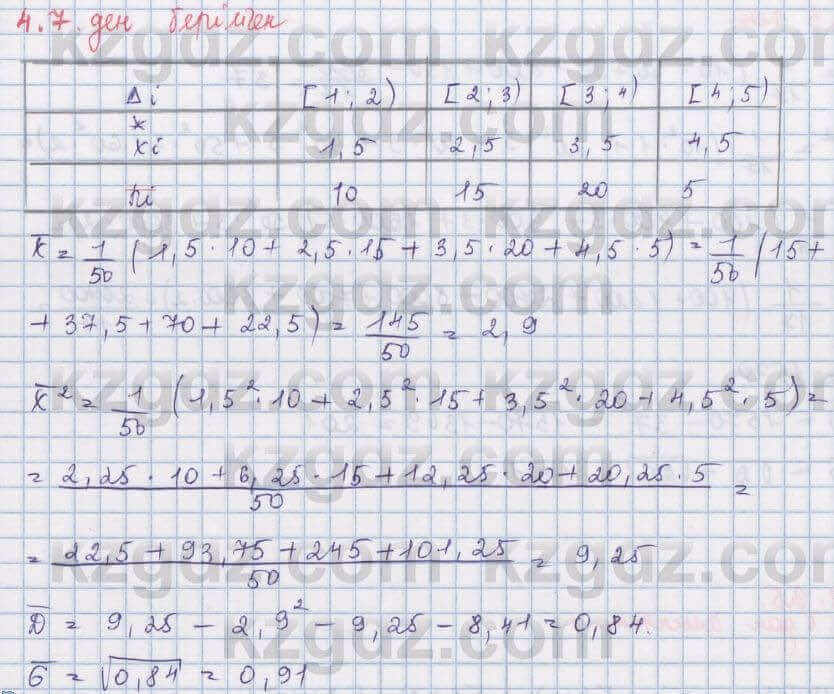 4.7. ден берілген
Δi [1; 2) [2; 3) [3; 4) [4; 5)
x*i 1,5 2,5 3,5 4,5
ni 10 15 20 5
x̅ = 1/50 (1,5 · 10 + 2,5 · 15 + 3,5 · 20 + 4,5 · 5) = 1/50 (15 +
+ 37,5 + 70 + 22,5) = 145/50 = 2,9
x̅² = 1/50 (1,5² · 10 + 2,5² · 15 + 3,5² · 20 + 4,5² · 5) =
= 2,25 · 10 + 6,25 · 15 + 12,25 · 20 + 20,25 · 5 / 50 =
= 22,5 + 93,75 + 245 + 101,25 / 50 = 9,25
D̅ = 9,25 - 2,9² - 9,25 - 8,41 = 0,84.
σ̅ = √0,84 = 0,91
kzgdz.com